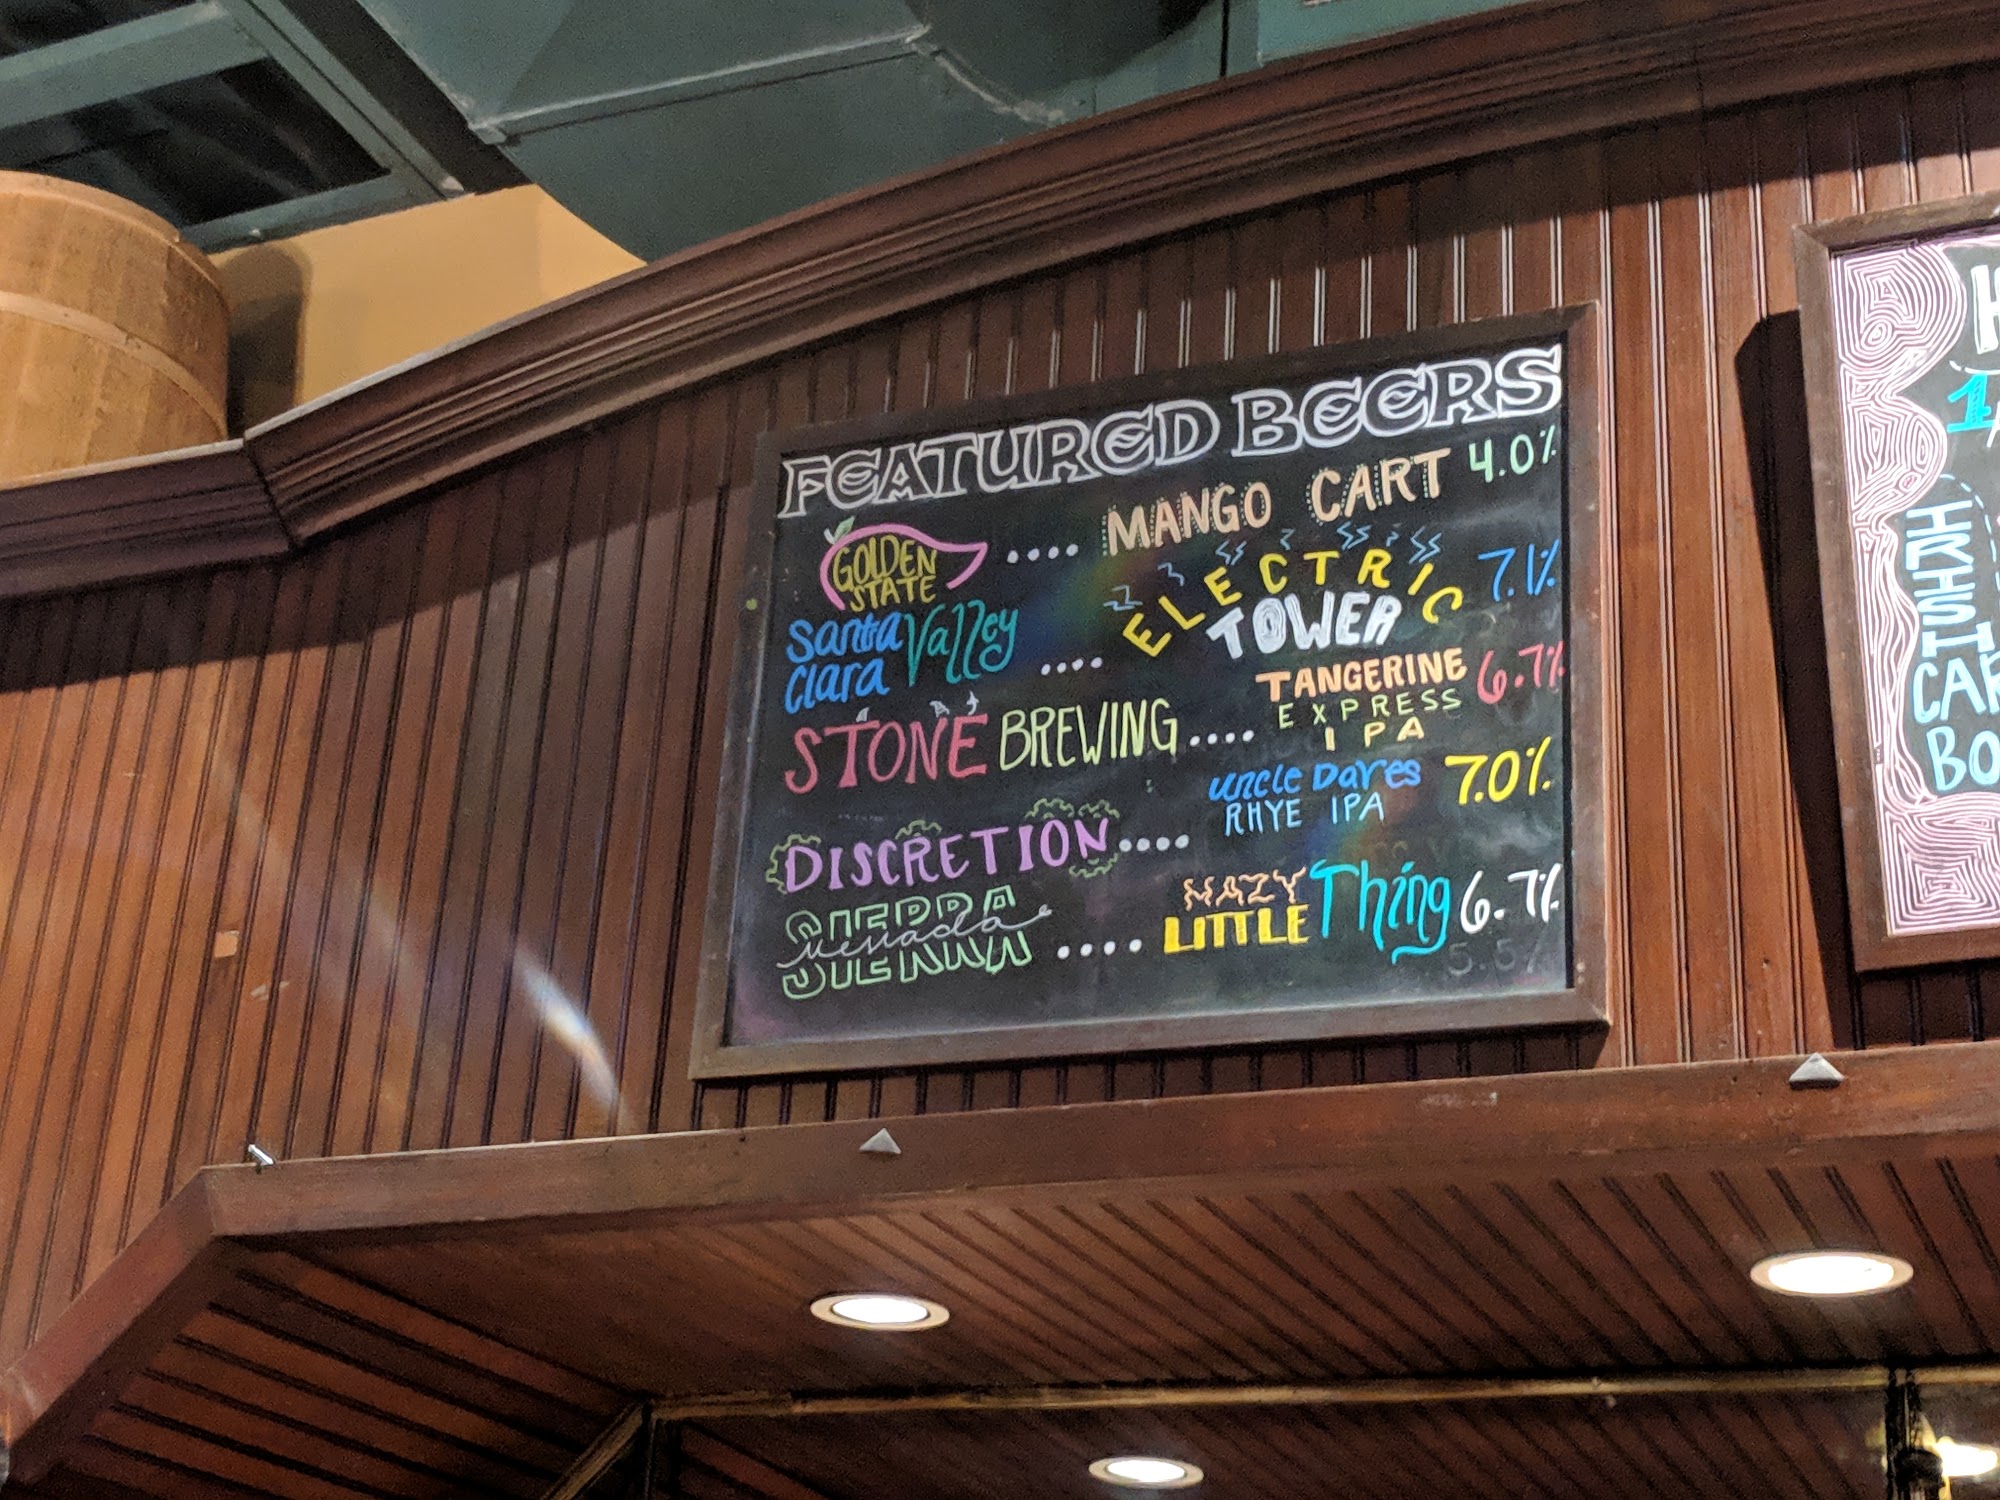 FEATURED BEERS
GOLDEN STATE .... MANGO CART 4.0%
Santa Clara Valley .... ELECTRIC TOWER 7.1%
STONE BREWING .... TANGERINE EXPRESS IPA 6.7%
DISCRETION .... uncle Daves RHYE IPA 7.0%
SIERRA nevada .... HAZY LITTLE Thing 6.7%
5.5%
H
1/
IRISH
CAR
BO